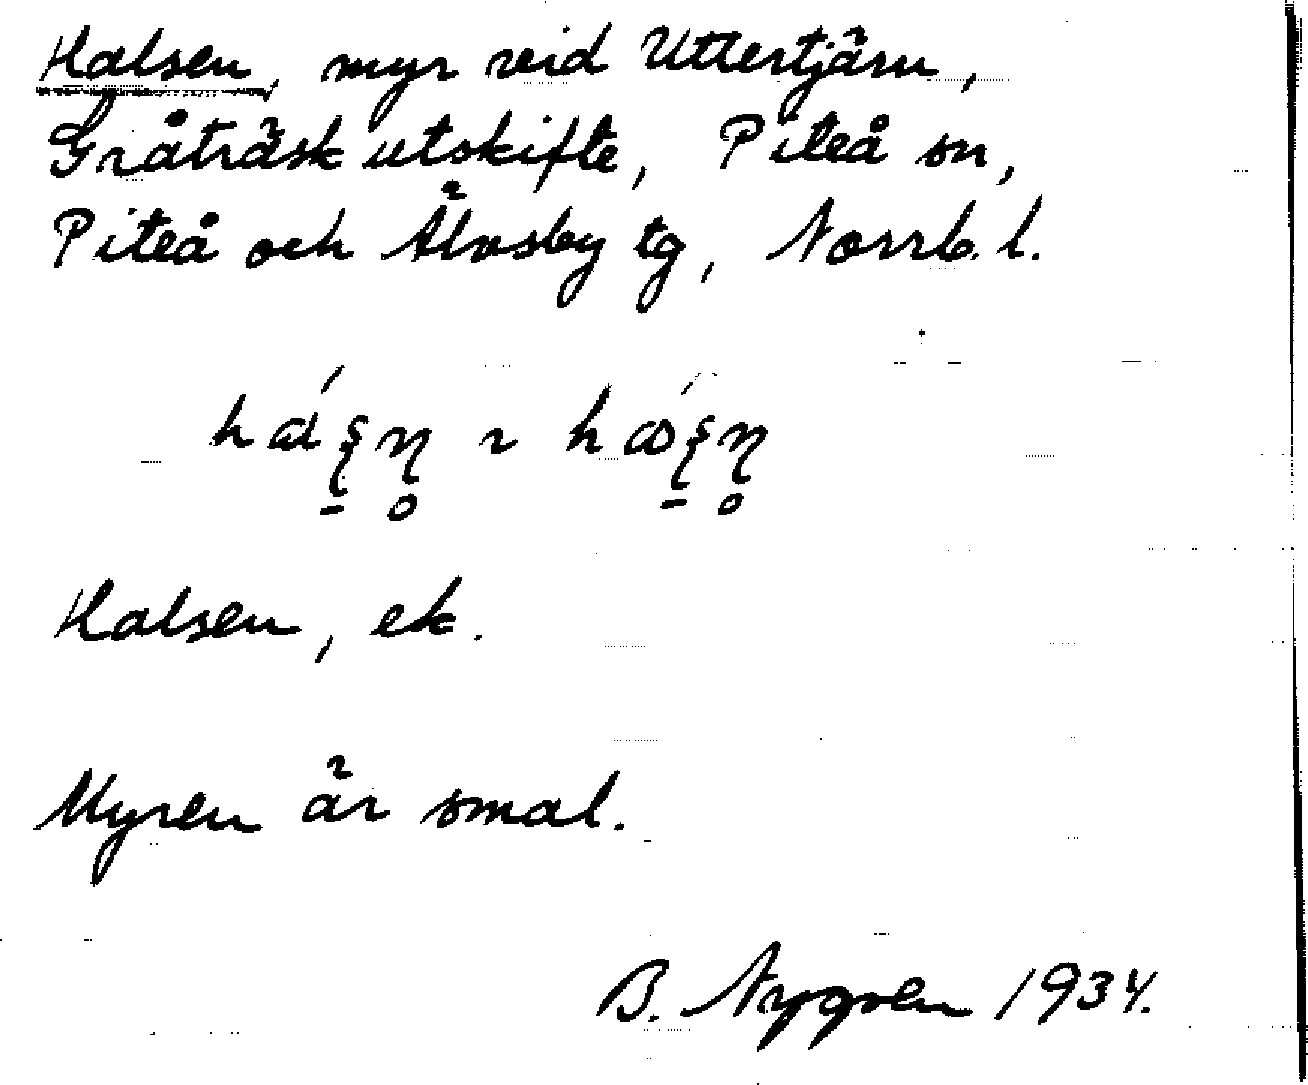 Halsen, myr vid Uttertjärn,
Gråträsk utskifte, Piteå sn,
Piteå och Älvsby tg, Norrb. l.
Halsen, ek.
Myren är smal.
B. Nygren 1934.